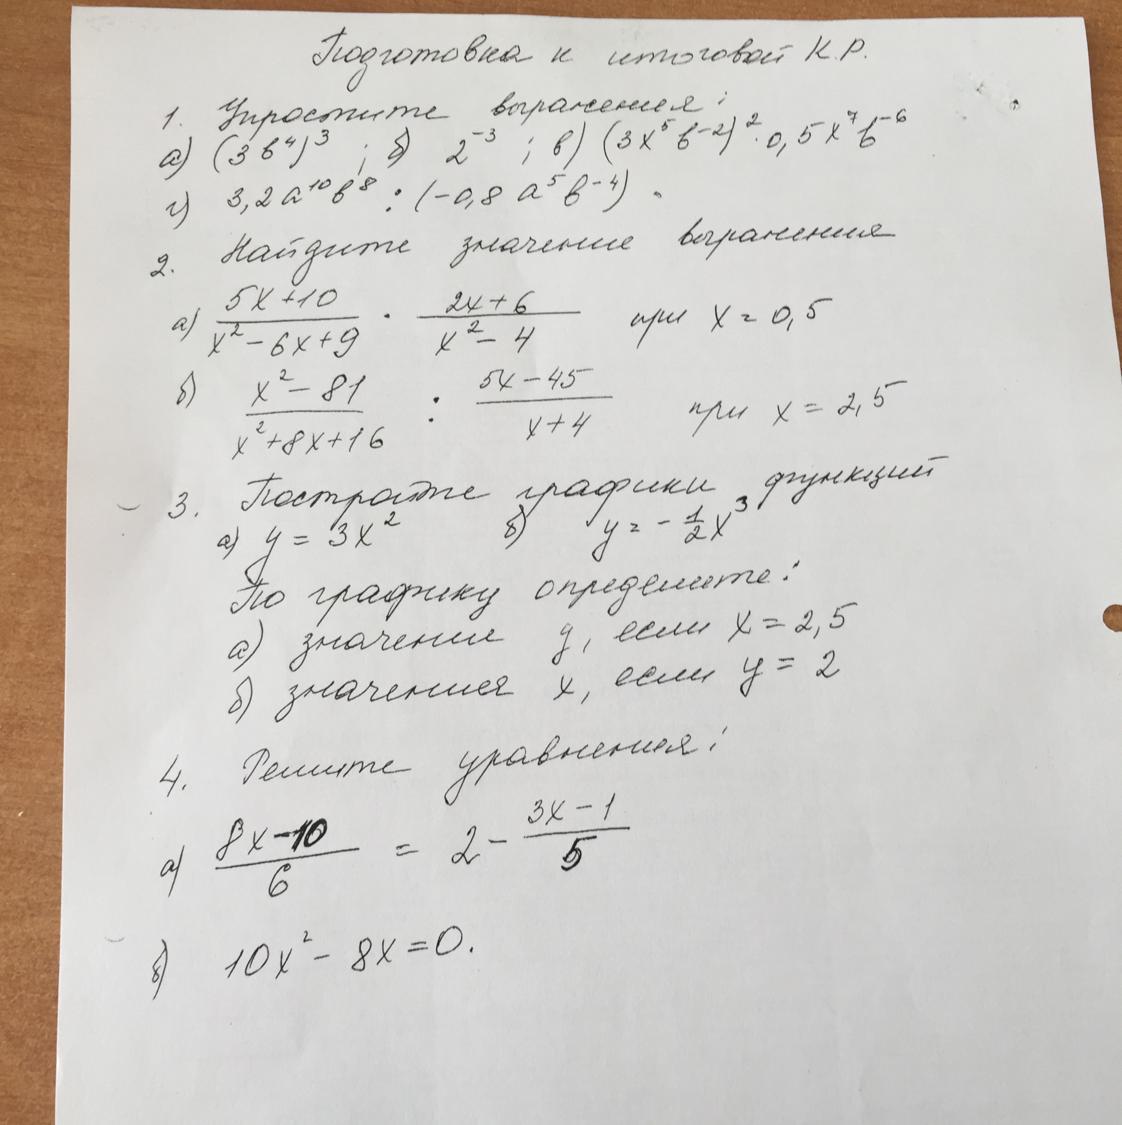 Подготовка к итоговой К.Р.
1. Упростите выражения:
а) (3b⁴)³ ; б) 2⁻³ ; в) (3x⁵b⁻²)² · 0,5x⁷b⁻⁶
г) 3,2a¹⁰b⁸ : (-0,8a⁵b⁻⁴).
2. Найдите значение выражения
а) (5x+10)/(x²-6x+9) · (2x+6)/(x²-4) при x = 0,5
б) (x²-81)/(x²+8x+16) : (5x-45)/(x+4) при x = 2,5
3. Постройте графики функций
а) y = 3x² б) y = -1/2x³
По графику определите:
а) значение y, если x = 2,5
б) значения x, если y = 2
4. Решите уравнения:
а) (8x-10)/6 = 2 - (3x-1)/5
б) 10x² - 8x = 0.